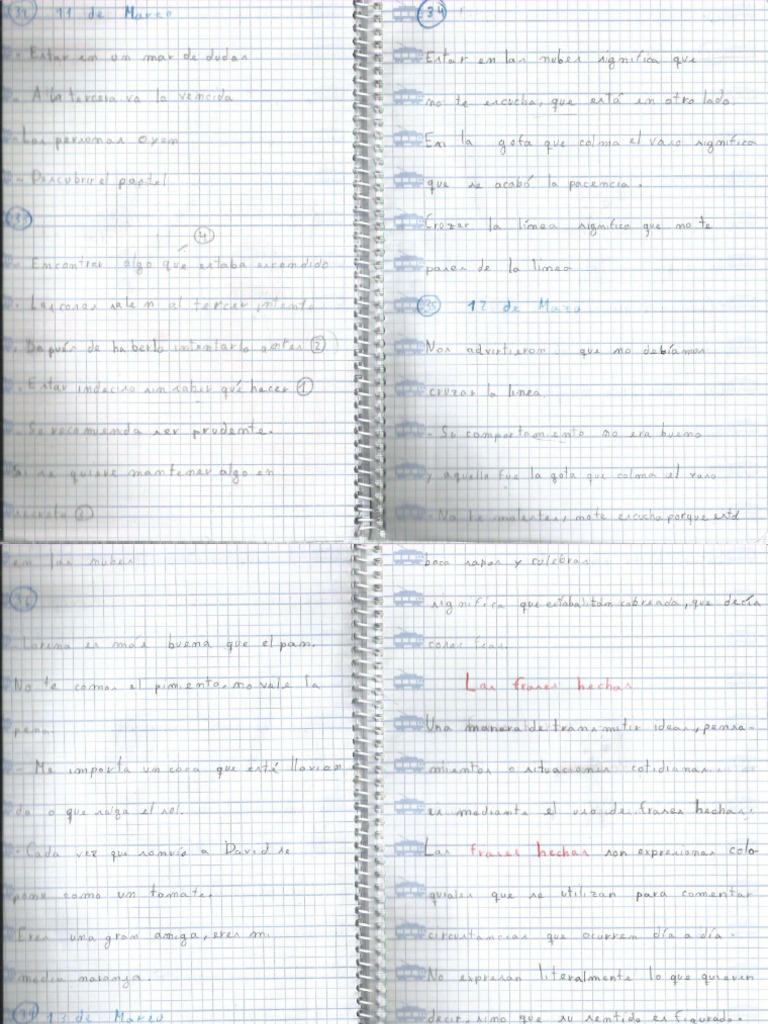 32 11 de Marzo
- Estar en un mar de dudas
- A la tercera va la vencida
- Las personas oyen
- Descubrir el pastel
33
4
- Encontrar algo que estaba escondido
- Las cosas salen al tercer intento
. Después de haberlo intentarlo antes 2
- Estar indeciso sin saber qué hacer 1
- Se recomienda ser prudente.
Si se quiere mantener algo en
secreto 3
34
Estar en las nubes significa que
no te escucha, que está en otro lado.
Es la gota que colma el vaso significa
que se acabó la pacencia.
Cruzar la línea significa que no te
pases de la linea
35 12 de Marzo
Nos advirtieron que no debíamos
cruzar la linea.
- Su comportamiento no era bueno
y aquella fue la gota que colma el vaso
- No te molestes, no te escucha porque está
en las nubes
36
- Lorena es más buena que el pan.
No te comas el pimiento, no vale la
pena.
- Me importa un cara que esté llovien
do o que salga el sol.
- Cada vez que sonrío a David se
pone como un tomate.
Eres una gran amiga, eres mi
media naranja.
13 de Marzo
boca sapos y culebras
significa que estaba tan cabreada, que decía
cosas feas.
Las frases hechas
Una manera de transmitir ideas, pensa-
mientos o situaciones cotidianas.
es mediante el uso de frases hechas.
Las frases hechas son expresiones colo-
quiales que se utilizan para comentar
circustancias que ocurren día a día.
No expresan literalmente lo que quieren
decir, sino que su sentido es figurado.